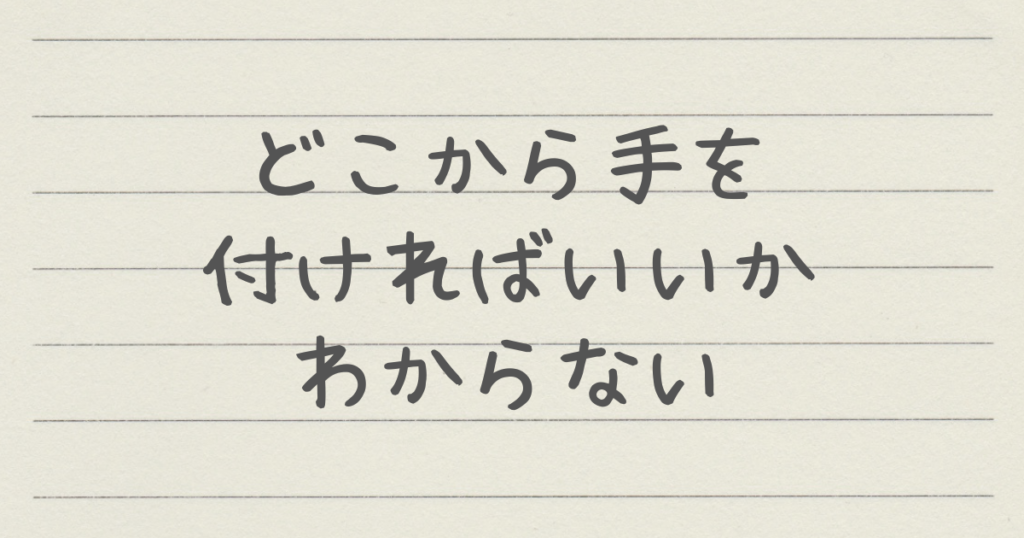 どこから手を
付ければいいか
わからない